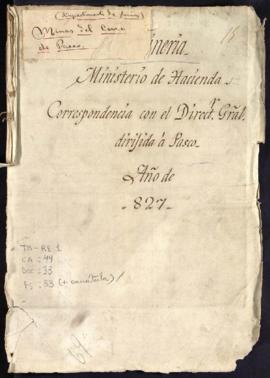 (Departamento de Junín)
Minas del Cerro
de Pasco
Minería
Ministerio de Hacienda
Correspondencia con el Direct.r Gral.
dirijida á Pasco
Año de
827
TM-RE 1
CA: 44
Doc: 33
Fs: 33 (+ carátula)